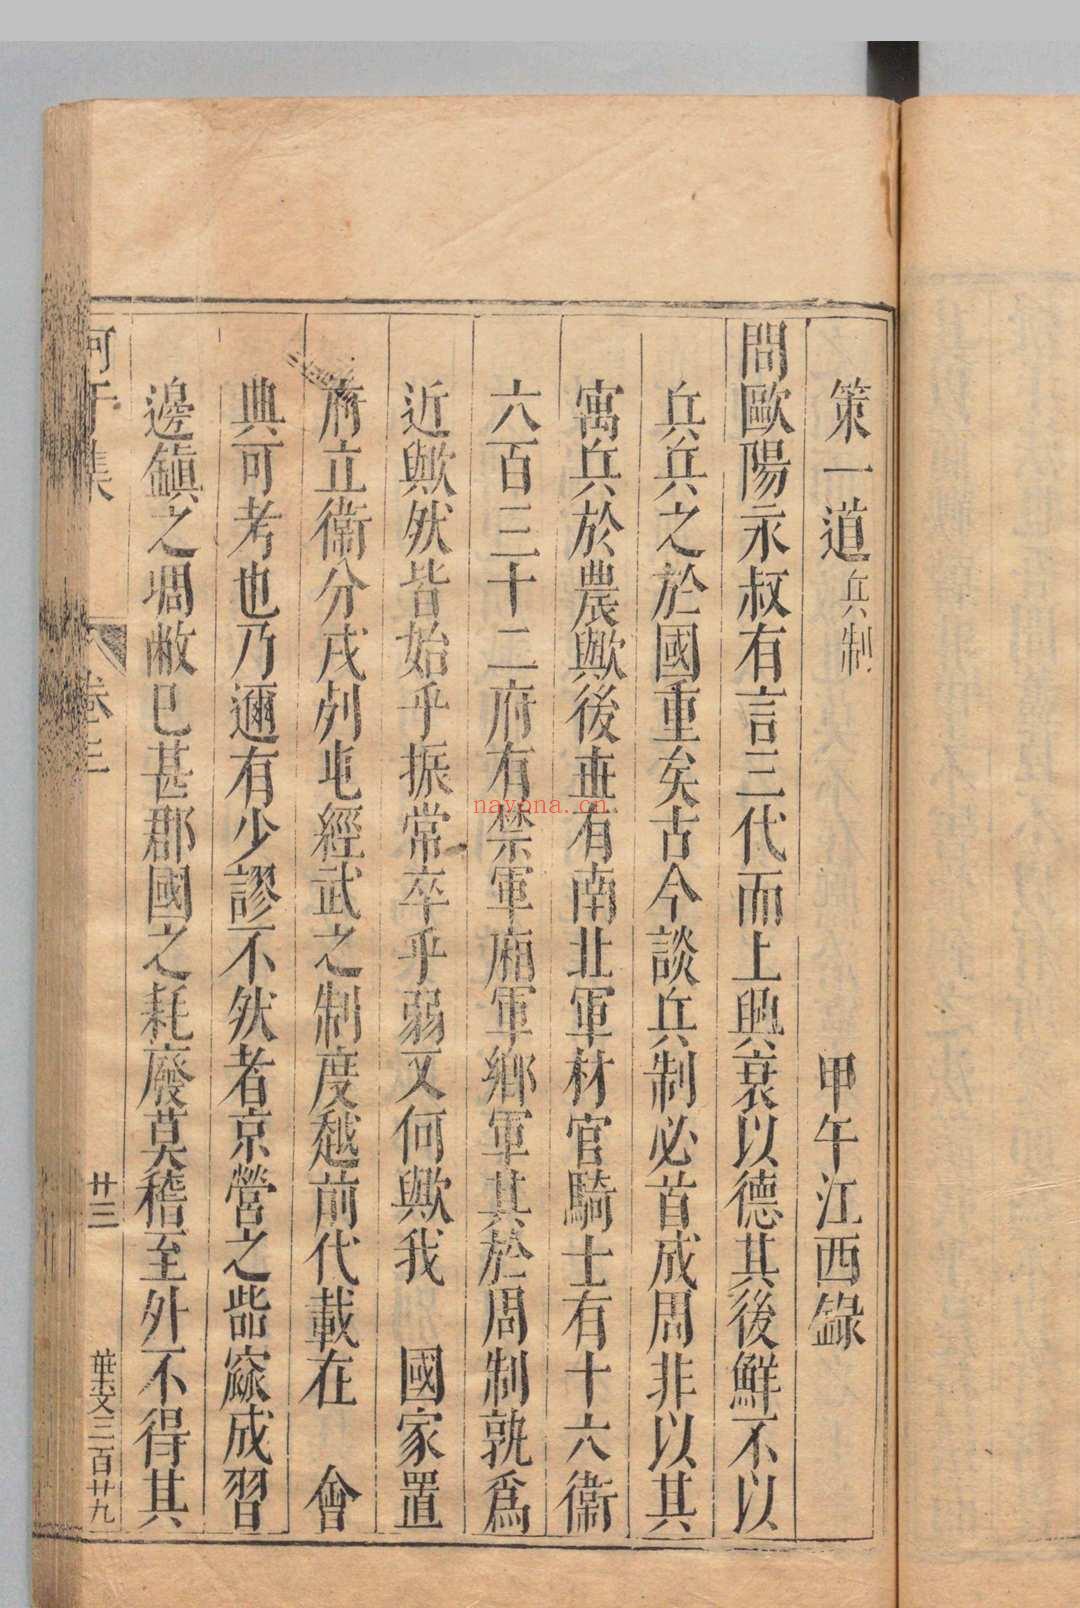 策一道 兵制 甲午江西錄
問歐陽永叔有言三代而上興衰以德其後鮮不以
兵兵之於國重矣古今談兵制必首成周非以其
寓兵於農歟後世有南北軍材官騎士有十六衞
六百三十二府有禁軍廂軍鄉軍其於周制孰爲
近歟然皆始乎振常卒乎弱又何歟我 國家置
府立衞分戍列屯經武之制度越前代載在 會
典可考也乃邇有少謬不然者京營之呰窳成習
邊鎮之凋敝已甚郡國之耗廢莫稽至外不得其
集 卷三 廿三 葉文三百廿九
nayona.cn